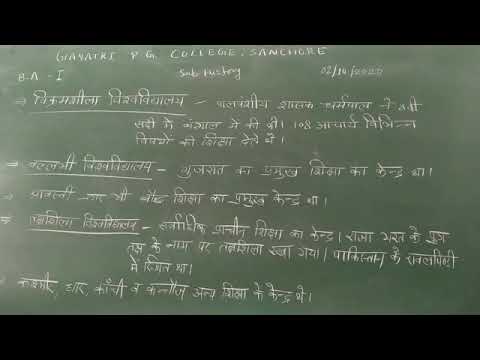 GAYATRI P.G. COLLEGE, SANCHORE
B.A - I Sub- History 02/10/2020
→ विक्रमशीला विश्वविद्यालय - पालवंशीय शासक धर्मपाल ने 8वी
सदी में बंगाल में की थी। 108 आचार्य विभिन्न
विषयो की शिक्षा देते थे।
→ वल्लभी विश्वविद्यालय - गुजरात का प्रमुख शिक्षा का केन्द्र था।
→ श्रावस्ती - भी बौद्ध शिक्षा का प्रमुख केन्द्र था।
→ तक्षशिला विश्वविद्यालय - सर्वाधिक प्राचीन शिक्षा का केन्द्र। राजा भरत के पुत्र
तक्ष के नाम पर तक्षशिला रखा गया। पाकिस्तान के रावलपिंडी
में स्थित था।
→ कश्मीर, धार, काँची व कन्नौज अन्य शिक्षा के केन्द्र थे।